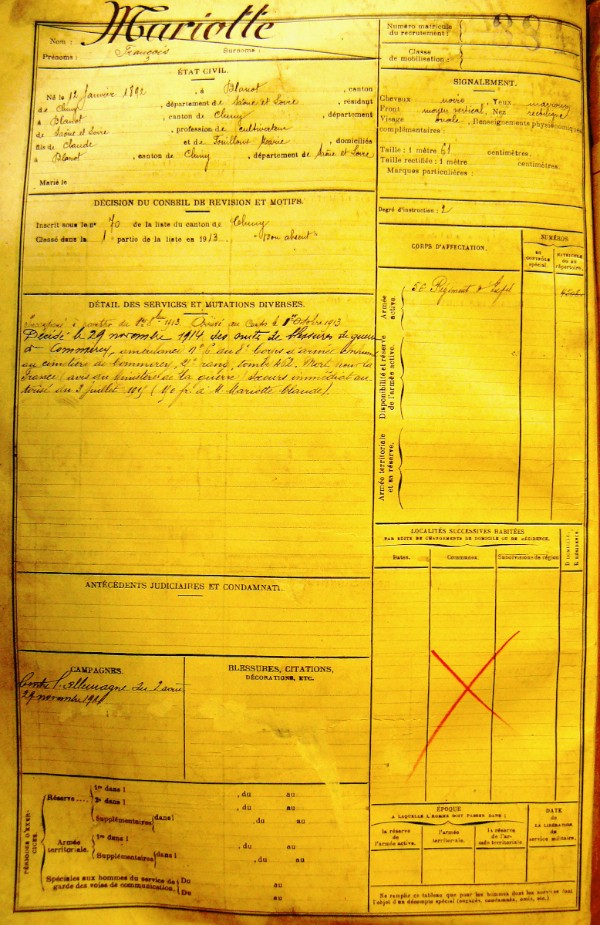 Mariotte
Nom :
Prénoms : François Surnoms :
Numéro matricule
du recrutement :
Classe
de mobilisation :
ÉTAT CIVIL.
Né le 12 Janvier 1892, à Blanot, canton
de Cluny, département de Saône et Loire, résidant
à Blanot, canton de Cluny, département
de Saône et Loire, profession de cultivateur
fils de Claude et de, domiciliés
à Blanot, canton de Cluny, département de Saône et Loire
Marié le
SIGNALEMENT.
Cheveux noirs, Yeux marrons
Front moyen vertical, Nez rectiligne
Visage ovale, Renseignements physionomiques
complémentaires :
Taille : 1 mètre 61 centimètres.
Taille rectifiée : 1 mètre centimètres.
Marques particulières :
Degré d'instruction : 2
DÉCISION DU CONSEIL DE REVISION ET MOTIFS.
Inscrit sous le no 70 de la liste du canton de Cluny
Classé dans la 1e partie de la liste en 1913. "Bon absent"
CORPS D'AFFECTATION.
NUMÉROS
AU
CONTRÔLE
SPÉCIAL.
MATRICULE
OU AU
RÉPERTOIRE.
Armée
active.
Disponibilité et réserve
de l'armée active.
Armée territoriale
et sa réserve.
DÉTAIL DES SERVICES ET MUTATIONS DIVERSES.
Incorporé à partir du 1913 Arrivé au Corps le 1913
Décédé le 29 novembre 1914 des suites de blessures de guerre
à Commercy, ambulance no 6 du 8e Corps d'armée Inhumé
au cimetière de Commercy, rang, tombe. Mort pour la
France (avis du Ministère de la guerre) Secours immédiat au-
torisé du 3 juillet 1915 (150 fr. à M. Mariotte Claude).
LOCALITÉS SUCCESSIVES HABITÉES
PAR SUITE DE CHANGEMENTS DE DOMICILE OU DE RÉSIDENCE.
Dates.
Communes.
Subdivisions de région.
D DOMICILE,
R RÉSIDENCE.
ANTÉCÉDENTS JUDICIAIRES ET CONDAMNATI
CAMPAGNES.
Contre l'Allemagne du 2 août
29 novembre
BLESSURES, CITATIONS,
DÉCORATIONS, ETC.
PÉRIODES D'EXER-
CICES.
Réserve....
1re dans l, du au
2e dans l, du au
Supplémentaires dans l, du au
Armée
territoriale.
1re dans l, du au
Supplémentaires dans l, du au
Spéciales aux hommes du service de
garde des voies de communication.
Du au
Du au
ÉPOQUE
A LAQUELLE L'HOMME DOIT PASSER DANS :
la réserve
de l'armée active.
l'armée
territoriale.
la réserve
de l'ar-
mée territoriale.
DATE
DE LA LIBÉRATION
du
service militaire.
Ne remplir ce tableau que pour les hommes dont les services font
l'objet d'un décompte spécial (engagés, condamnés, omis, etc.)